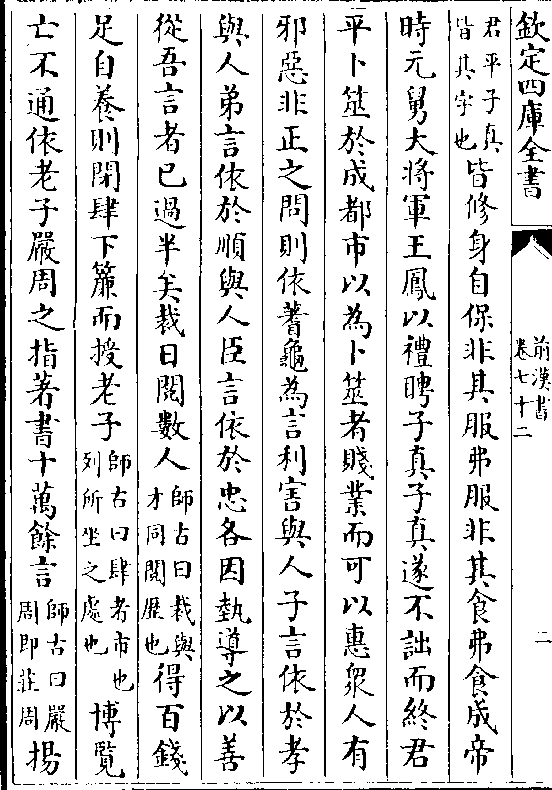 欽定四庫全書
前漢書
卷七十二
二
君平子真
皆其字也
皆修身自保非其服弗服非其食弗食成帝
時元舅大將軍王鳳以禮聘子真子真遂不詘而終君
平卜筮於成都市以為卜筮者賤業而可以惠衆人有
邪惡非正之問則依蓍龜為言利害與人子言依於孝
與人弟言依於順與人臣言依於忠各因埶導之以善
從吾言者已過半矣裁日閱數人
師古曰裁與
才同閱歴也
得百錢
足自養則閉肆下簾而授老子
師古曰肆者市也
列所坐之處也
博覧
亡不通依老子嚴周之指著書十萬餘言
師古曰嚴
周即莊周
揚